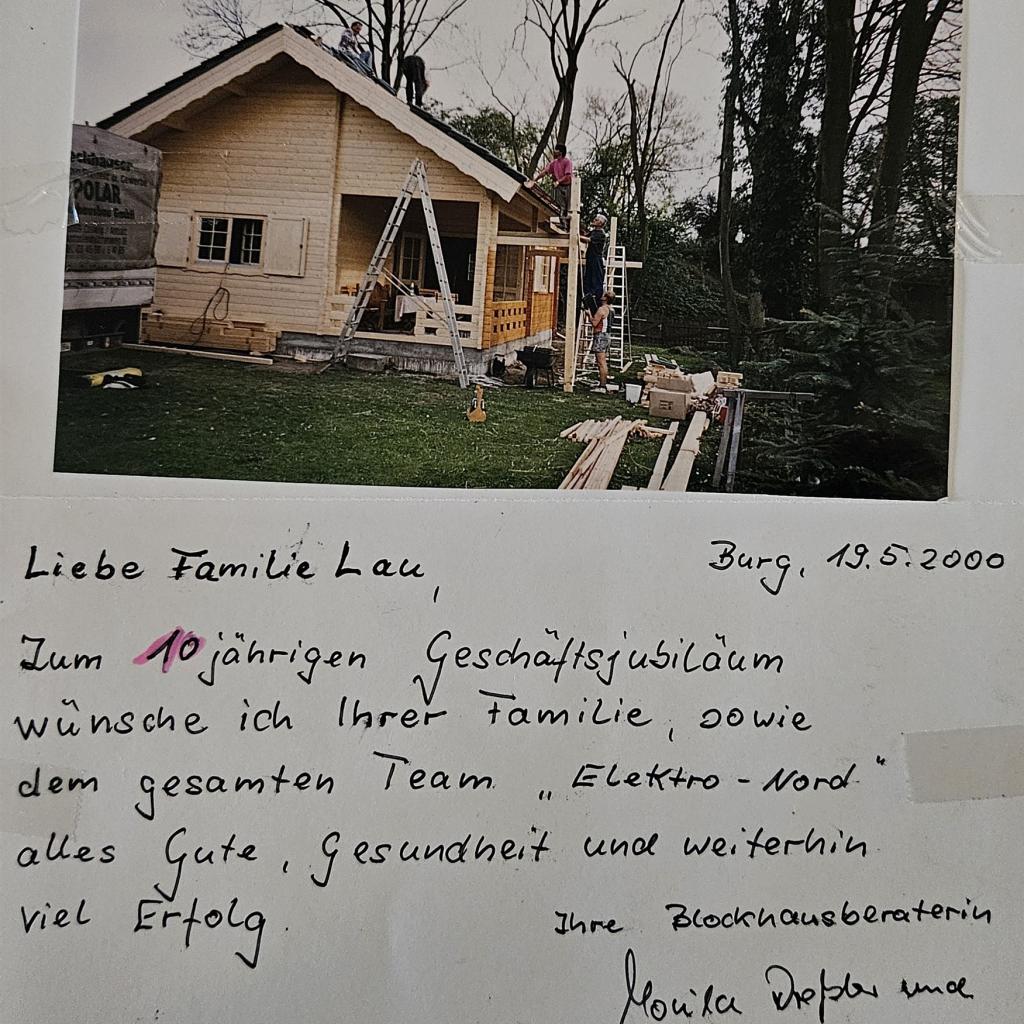 POLAR
Liebe Familie Lau,
Burg, 19.5.2000
Zum 10jährigen Geschäftsjubiläum
wünsche ich Ihrer Familie, sowie
dem gesamten Team „Elektro-Nord"
alles Gute, Gesundheit und weiterhin
viel Erfolg.
Ihre Blockhausberaterin
Monika und